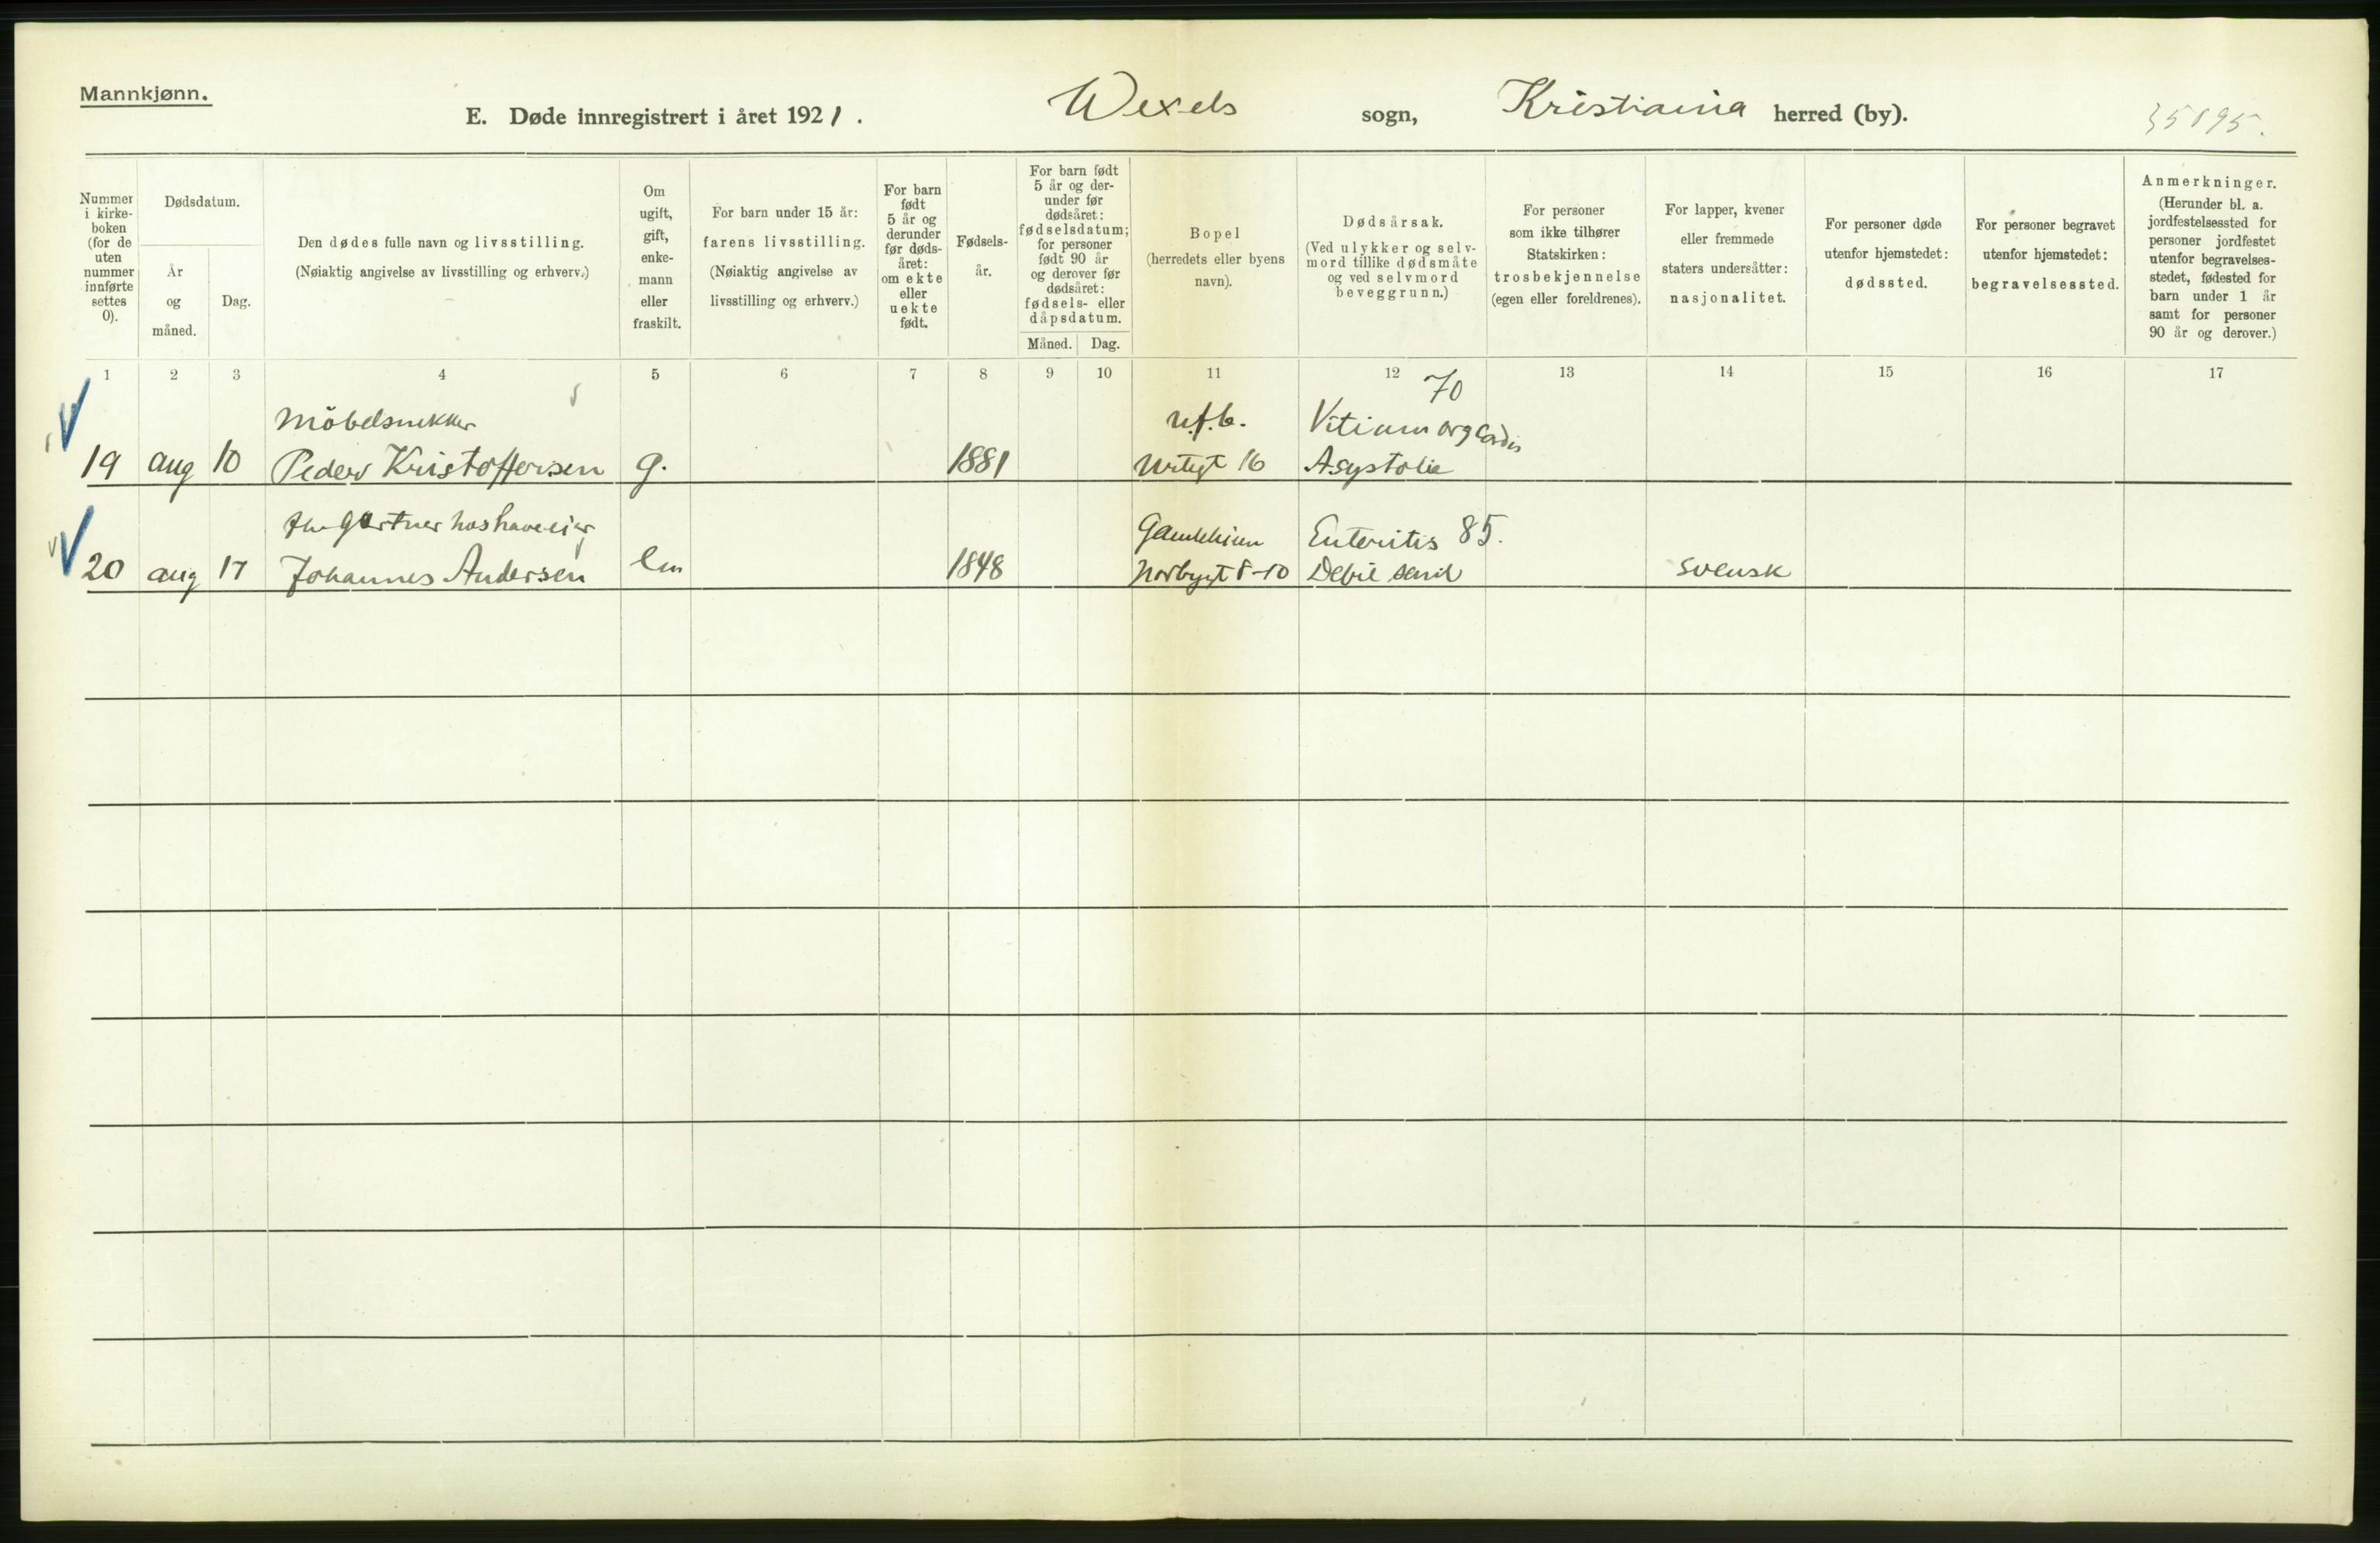 Mannkjønn.
E. Døde innregistrert i året 1921. Wexels sogn, Kristiania herred (by).
Nummer i kirke- boken (for de uten nummer innførte settes 0).
Dødsdatum.
År og måned.
Dag.
Den dødes fulle navn og livsstilling.
(Nøiaktig angivelse av livsstilling og erhverv.)
Om ugift, gift, enke- mann eller fraskilt.
For barn under 15 år:
farens livsstilling.
(Nøiaktig angivelse av
livsstilling og erhverv.)
For barn født 5 år og derunder før døds- året: om ekte eller uekte født.
Fødsels- år.
For barn født 5 år og der- under før dødsåret: fødselsdatum; for personer født 90 år og derover før dødsåret: fødsels- eller dåpsdatum.
Måned. Dag.
Bopel
(herredets eller byens
navn).
Dødsårsak.
(Ved ulykker og selv-
mord tillike dødsmåte
og ved selvmord
beveggrunn.)
For personer
som ikke tilhører
Statskirken:
trosbekjennelse
(egen eller foreldrenes).
For lapper, kvener
eller fremmede
staters undersåtter:
nasjonalitet.
For personer døde
utenfor hjemstedet:
dødssted.
For personer begravet
utenfor hjemstedet:
begravelsessted.
Anmerkninger.
(Herunder bl. a.
jordfestelsessted for
personer jordfestet
utenfor begravelses-
stedet, fødested for
barn under 1 år
samt for personer
90 år og derover.)
1 2 3 4 5 6 7 8 9 10 11 12 13 14 15 16 17
70
Möbelsnekker u.f.b. Vitium org cordis
19 aug 10 Peder Kristoffersen g. 1881 Urtegt 16 Asystolie
Gartner hos haveeier Gamlehjem Enteritis 85.
20 aug 17 Johannes Andersen Em 1848 Norbygt 8-10 Debil senil svensk